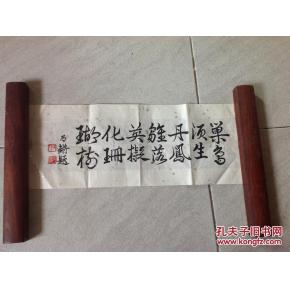 巢鸟
须生
丹凤
雏落
英拟
化珊
瑚树
孔夫子旧书网
www.kongfz.com